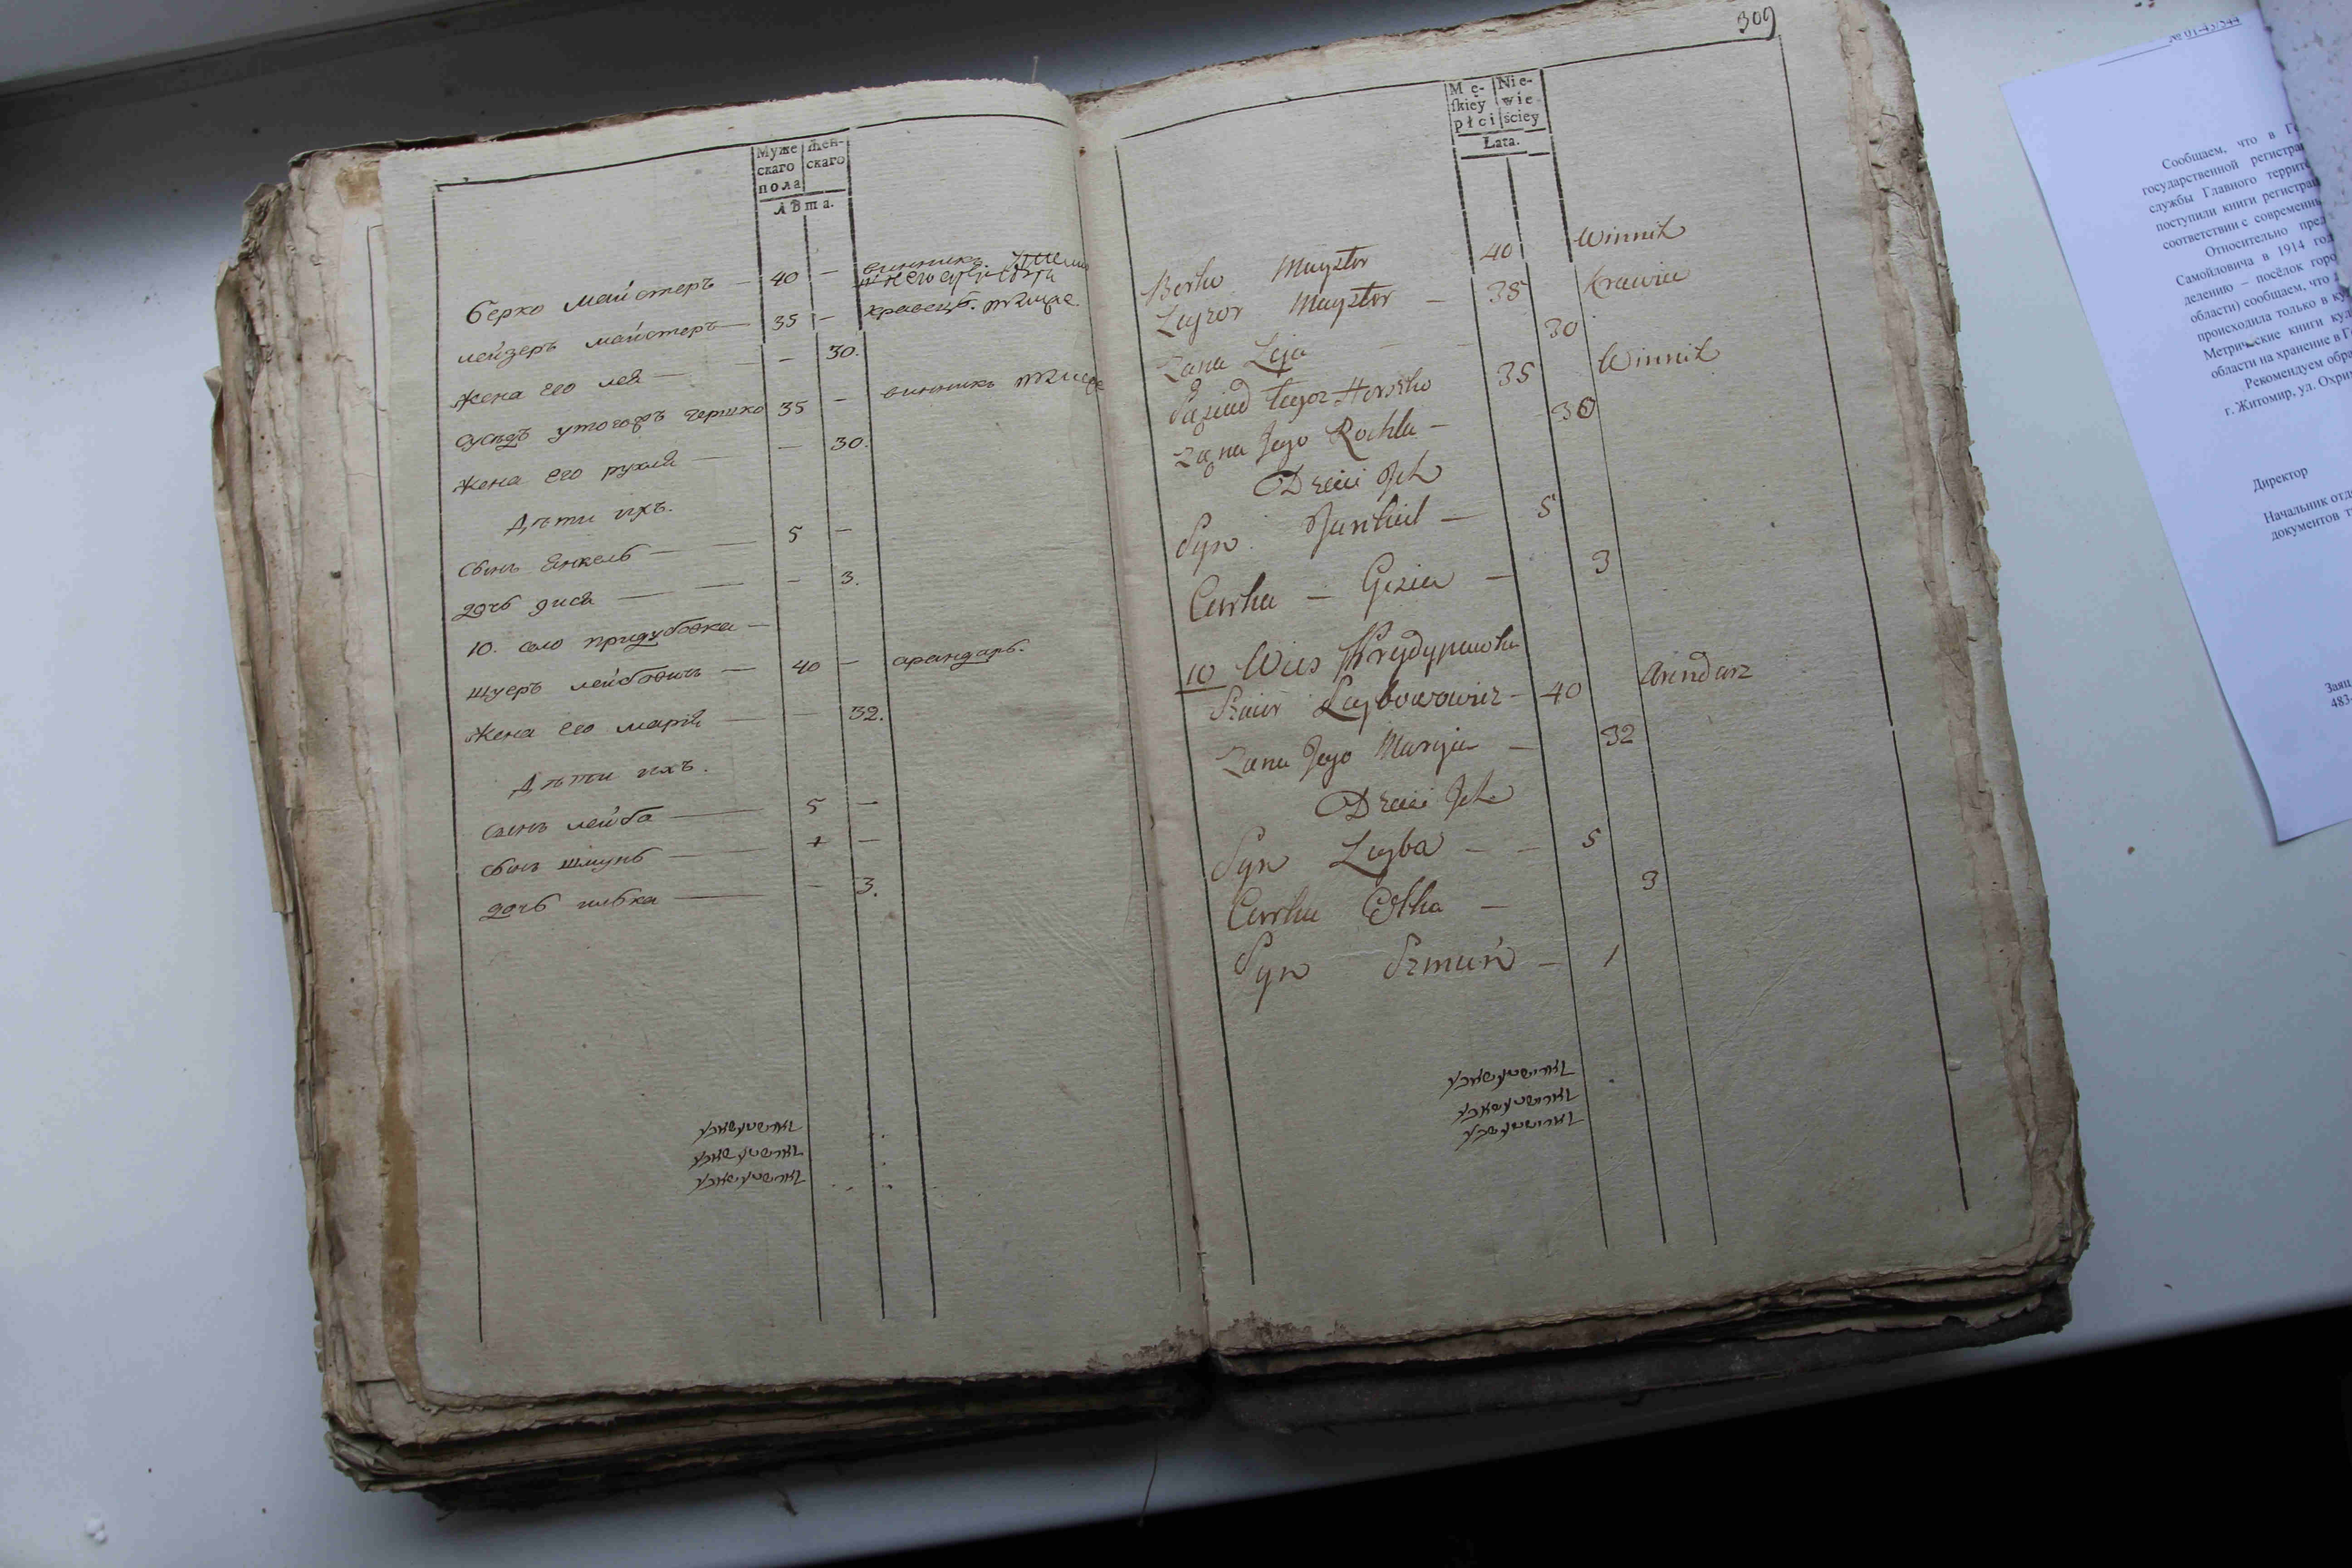 Муже
скаго
пола
Жен-
скаго
лѣта.
Берко майстеръ — 40 — винникъ.
лейзеръ майстеръ — 35 — кравецъ.
жена его лея — — 30.
сусѣдъ утогожъ гершко 35 — винникъ
жена его рухля — — 30.
Дѣти ихъ.
сынъ Янкель — 5 —
дочь гися — — 3.
10. село придубовка —
шуеръ лейбовичъ — 40 — арандарь.
жена его марія — — 32.
Дѣти ихъ.
сынъ лейба — 5 —
сынъ шмунь — 1 —
дочь цибка — — 3.
309
Mę-
ſkiey
płci
Nie-
wie
ściey
Łata.
Berko Mayster 40 Winnik
Layzor Mayster — 35 Krawiec
Zana Leja — — 30
Sąsiad tegoż Herszko 35 Winnik
Zona Jego Rochla — 30
Dzieci Ich
Syn Jankiel — 5
Curka — Gisia — 3
10 Wies Prydupowka
Szuier Leybowowicz — 40 Arendarz
Zana Jego Maryia — 32
Dzieci Ich
Syn Leyba — — 5
Curka Cibka — 3
Syn Szmuń — 1
№ 01-43/544
Сообщаем, что в
государственной
службы Главного
поступили книги
соответствии с
Относительно
Самойловича в 1914
делению – посёлок
области) сообщаем, что
происходила только в
Метрические книги
области на хранение в
Рекомендуем
г. Житомир, ул.
Директор
Начальник
документов